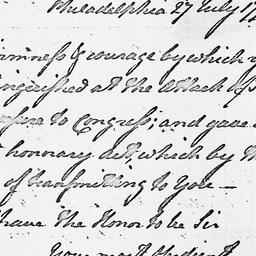 Philadelphia 27 July 17
firmness & courage by which
inguished at the Attack of
to Congress; and gave
honorary which by th
of transmitting to You —
have the Honor to be Sir
Your most Obedient